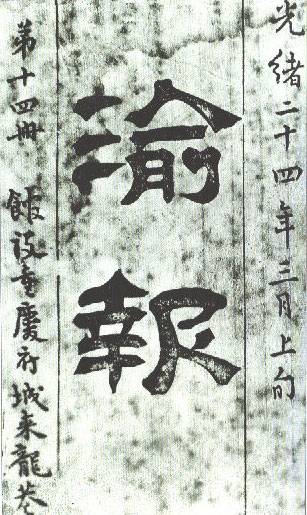 光緒二十四年三月上旬
渝報
第十四冊 館設重慶府城来龍巷